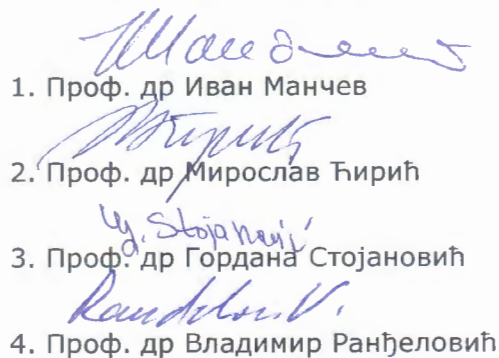 1. Проф. др Иван Манчев
2. Проф. др Мирослав Ћирић
G. Stojanović
3. Проф. др Гордана Стојановић
4. Проф. др Владимир Ранђеловић